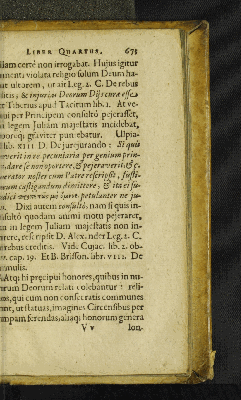 LIBER QUARTUS. 673
iam certè non irrogabat. Hujus igitur
menti violata religio solum Deum ha-
ultorem, ut ait Leg. 2. C. De rebus
ditis; & injurias Deorum Diis curæ esse
Tiberius apud Tacitum lib. 1. At ve-
ui per Principem consultò pejerasset,
in legem Juliam majestatis incidebat,
graviter puniebatur. Ulpia-
lib. XIII D. De jurejurando: Si quis
averit in re pecuniaria per genium prin-
dare se non oportere, & pejeraverit
perator noster cum Patre rescripsit, fusti-
eum castigandum dimittere, & ita ei su-
petulanter ne ju-
Dixi autem consultò, nam si quis in-
sultò quodam animi motu pejeraret,
in legem Juliam majestatis non in-
rere, rescripsit D. Alexander Leg. 2. C.
rebus creditis. Vide Cujac. lib. 2. ob-
cap. 19. Et B. Brisson. libr. VIII. De
rmulis.
Atq; hi præcipui honores, quibus in nu-
rum Deorum relati colebantur: reli-
os, qui cum non consecratis communes
nt, ut statuas, imagines Circensibus per
mpam ferendas, aliaq; honorum genera
V v Ion-